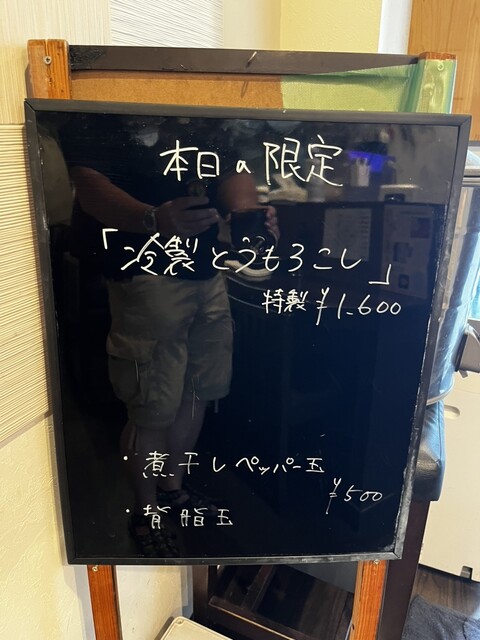 本日の限定
「冷製とうもろこし」
特製 ¥1,600
・煮干しペッパー玉
¥500
・背脂玉